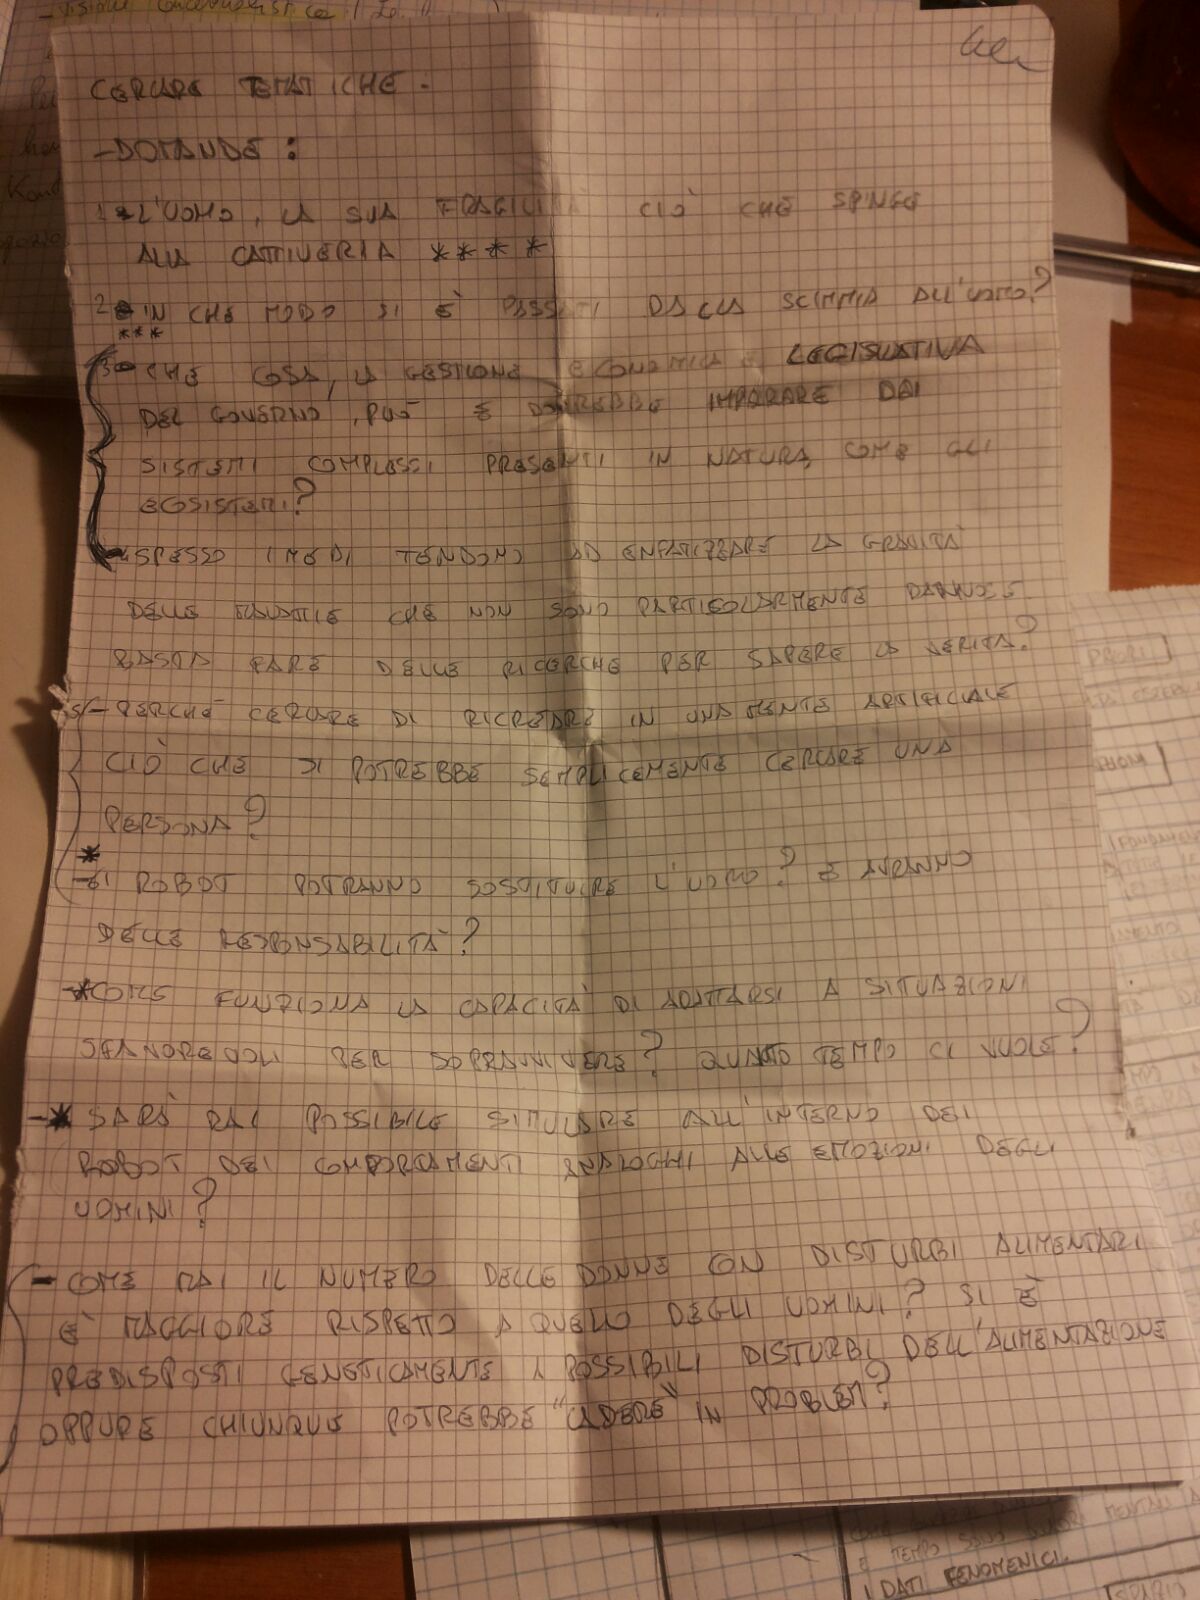 CERCARE TEMATICHE.
-DOMANDE:
1 L'UOMO, LA SUA FRAGILITÀ CIÒ CHE SPINGE
ALLA CATTIVERIA ****
2 IN CHE MODO SI È PASSATI DALLA SCIMMIA ALL'UOMO?
***
3 CHE COSA, LA GESTIONE ECONOMICA E LEGISLATIVA
DEL GOVERNO, PUÒ E DOVREBBE IMPARARE DAI
SISTEMI COMPLESSI PRESENTI IN NATURA, COME GLI
ECOSISTEMI?
4 SPESSO I MEDI TENDONO AD ENFATIZZARE LA GRAVITÀ
DELLE MALATTIE CHE NON SONO PARTICOLARMENTE DANNOSE.
BASTA FARE DELLE RICERCHE PER SAPERE LA VERITÀ?
5 - PERCHÉ CERCARE DI RICREARE IN UNA MENTE ARTIFICIALE
CIÒ CHE SI POTREBBE SEMPLICEMENTE CERCARE UNA
PERSONA?
*
-6 I ROBOT POTRANNO SOSTITUIRE L'UOMO? E AVRANNO
DELLE RESPONSABILITÀ?
-*COME FUNZIONA LA CAPACITÀ DI ADATTARSI A SITUAZIONI
SFAVOREVOLI PER SOPRAVVIVERE? QUANTO TEMPO CI VUOLE?
-* SARÀ MAI POSSIBILE SIMULARE ALL'INTERNO DEI
ROBOT DEI COMPORTAMENTI ANALOGHI ALLE EMOZIONI DEGLI
UOMINI?
- COME MAI IL NUMERO DELLE DONNE CON DISTURBI ALIMENTARI
È MAGGIORE RISPETTO A QUELLO DEGLI UOMINI? SI È
PREDISPOSTI GENETICAMENTE A POSSIBILI DISTURBI DELL'ALIMENTAZIONE
OPPURE CHIUNQUE POTREBBE "CADERE" IN PROBLEMI?
E TEMPO SONO
I DATI FENOMENICI.
SPAZIO